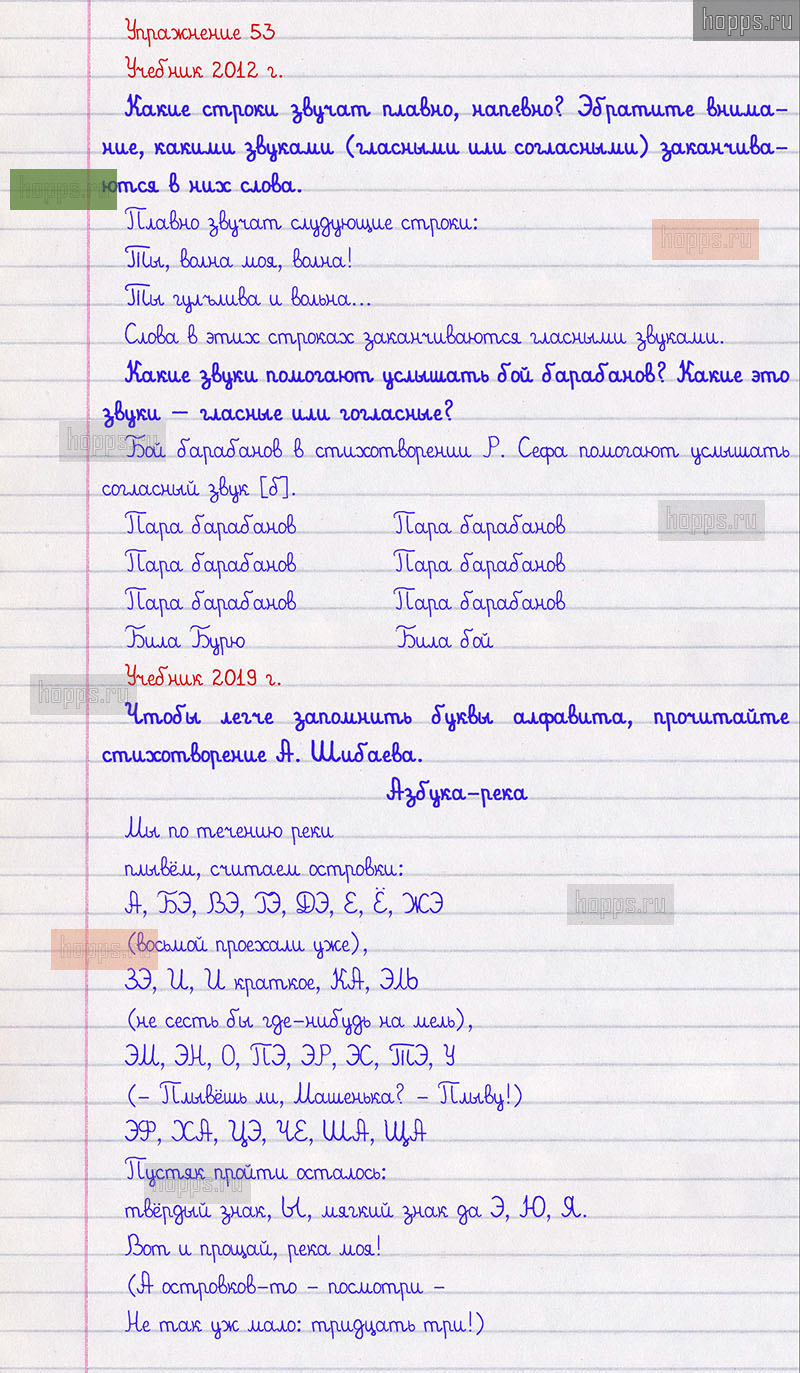 hopps.ru
Упражнение 53
Учебник 2012 г.
Какие строки звучат плавно, напевно? Эбратите внима-
ние, какими звуками (гласными или согласными) заканчива-
ются в них слова.
hopps.ru
Плавно звучат слудующие строки:
hopps.ru
Ты, волна моя, волна!
Ты гулълива и вольна...
Слова в этих строках заканчиваются гласными звуками.
Какие звуки помогают услышать бой барабанов? Какие это
звуки – гласные или гогласные?
hopps.ru
Бой барабанов в стихотворении Р. Сефа помогают услышать
согласный звук [б].
hopps.ru
Пара барабанов Пара барабанов
Пара барабанов Пара барабанов
Пара барабанов Пара барабанов
Била Бурю Била бой
Учебник 2019 г.
hopps.ru
Чтобы легче запомнить буквы алфавита, прочитайте
стихотворение А. Шибаева.
Азбука-река
Мы по течению реки
плывём, считаем островки:
А, БЭ, ВЭ, ГЭ, ДЭ, Е, Ё, ЖЭ
hopps.ru
(восьмой проехали уже),
hopps.ru
ЗЭ, И, И краткое, КА, ЭЛЬ
(не сесть бы где-нибудь на мель),
ЭМ, ЭН, О, ПЭ, ЭР, ЭС, ТЭ, У
(– Плывёшь ли, Машенька? – Плыву!)
ЭФ, ХА, ЦЭ, ЧЕ, ША, ЩА
Пустяк пройти осталось:
hopps.ru
твёрдый знак, Ы, мягкий знак да Э, Ю, Я.
Вот и прощай, река моя!
(А островков-то – посмотри –
Не так уж мало: тридцать три!)